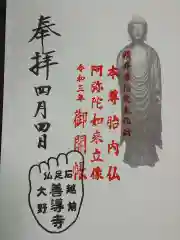 本尊胎内仏
阿弥陀如来立像
令和三年 御開帳
奉拝
四月四日
仏足石
越前
大野
善導寺